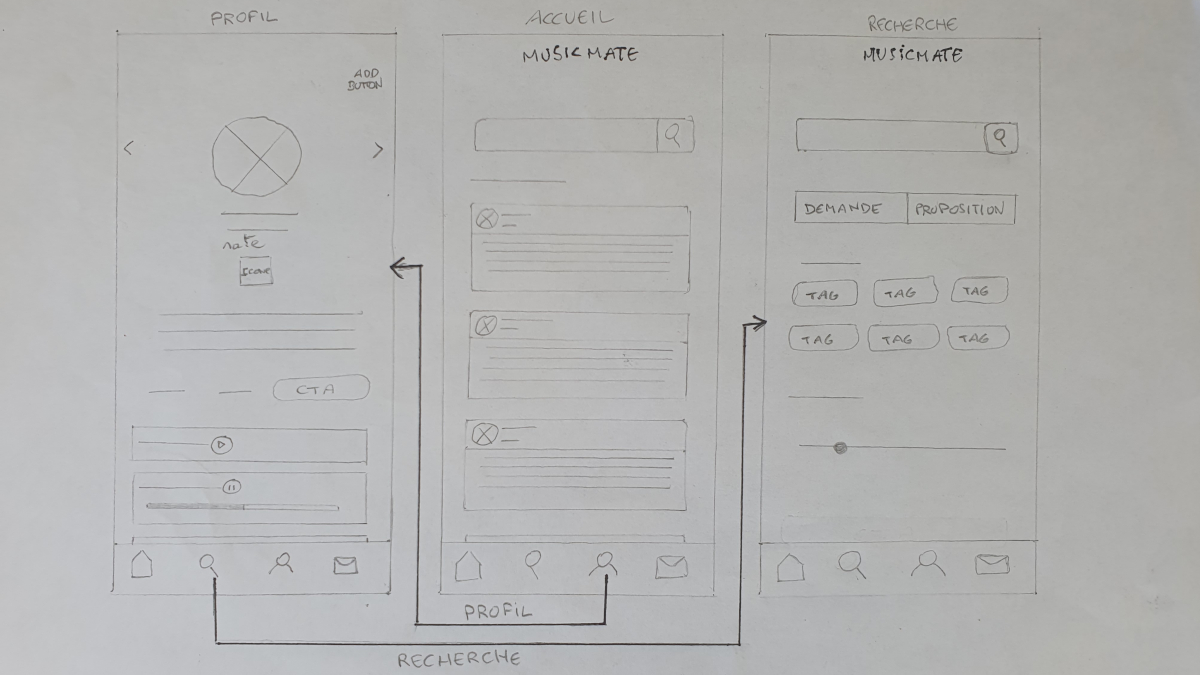 PROFIL
ADD
BUTTON
note
SCORE
CTA
ACCUEIL
MUSICMATE
RECHERCHE
MUSICMATE
DEMANDE PROPOSITION
TAG TAG TAG
TAG TAG TAG
PROFIL
RECHERCHE